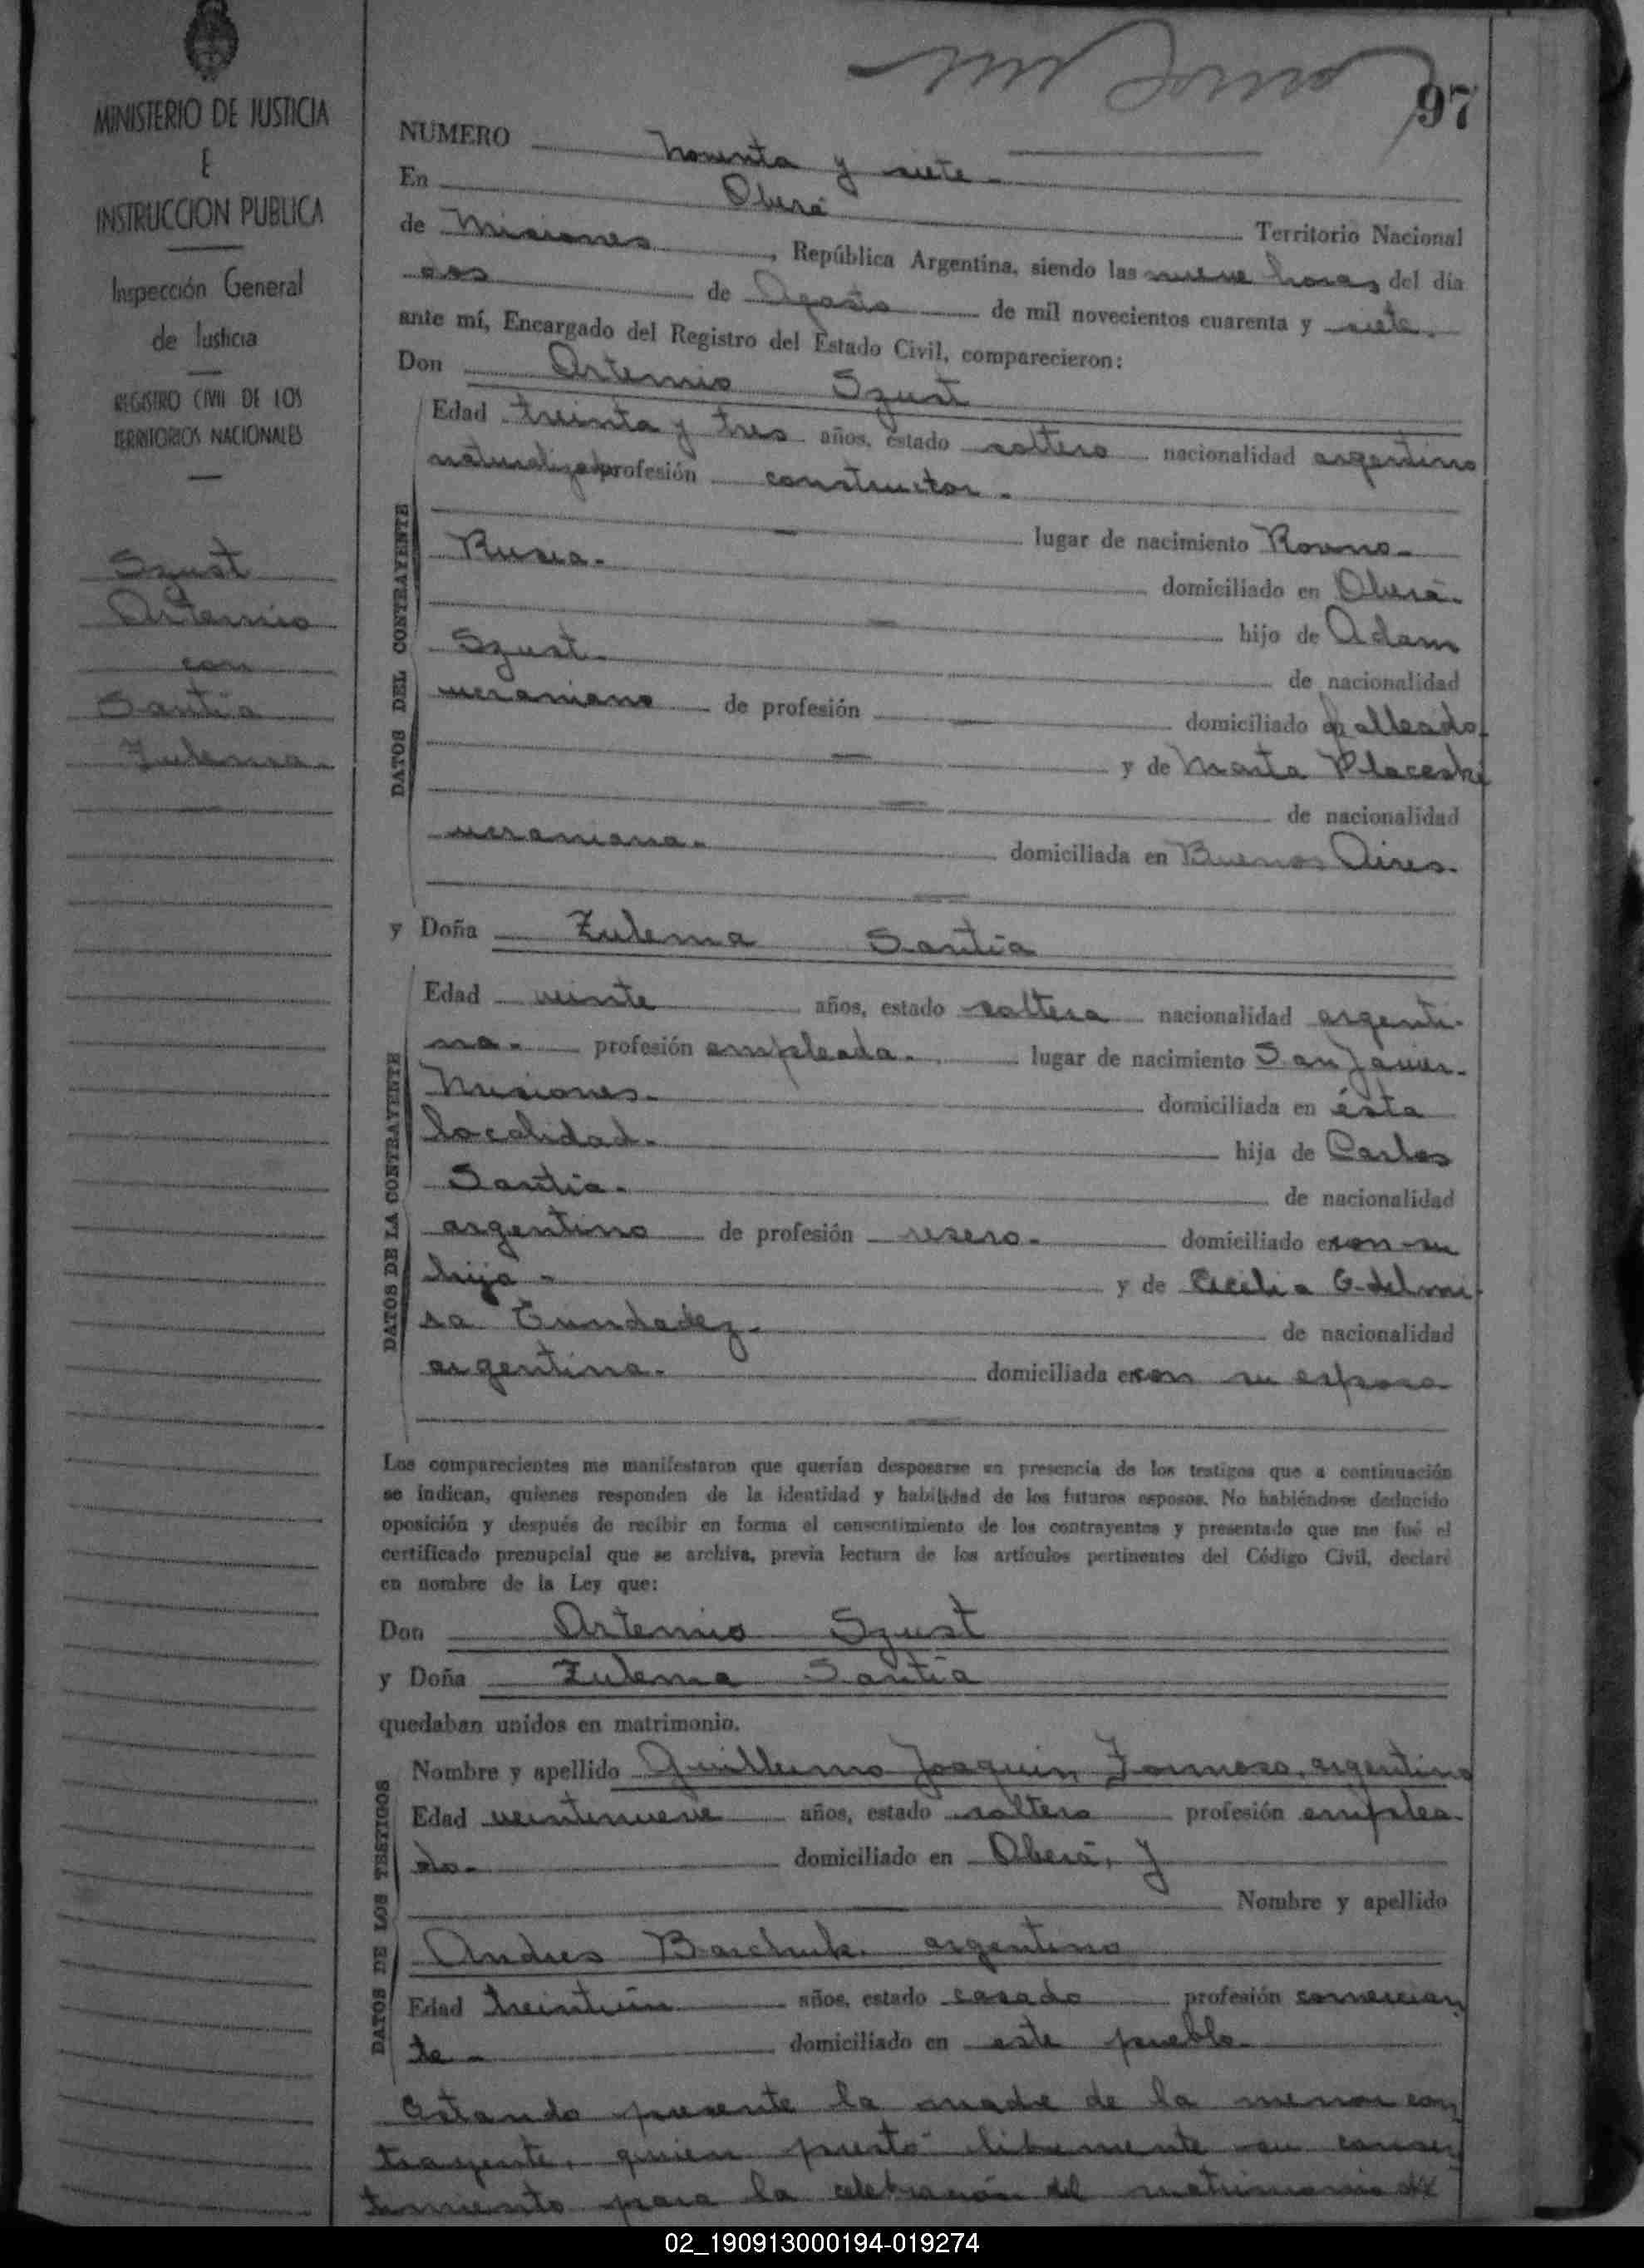 97
MINISTERIO DE JUSTICIA
E
INSTRUCCION PUBLICA
Inspección General
de Justicia
REGISTRO CIVIL DE LOS
TERRITORIOS NACIONALES
Szust
Artemio
con
Santia
Zulema.
NUMERO Noventa y siete
En Oberá Territorio Nacional
de Misiones, República Argentina, siendo las nueve horas del día
dos de Agosto de mil novecientos cuarenta y siete.
ante mí, Encargado del Registro del Estado Civil, comparecieron:
Don Artemio Szust
DATOS DEL CONTRAYENTE
Edad treinta y tres años, estado soltero nacionalidad argentino
naturalizado profesión constructor.
lugar de nacimiento Rovno.
Rusia.
domiciliado en Oberá.
hijo de Adam
Szust.
de nacionalidad
ucraniano de profesión domiciliado falleado
y de Marta
de nacionalidad
ucraniana. domiciliada en Buenos Aires.
y Doña Zulema Santia
DATOS DE LA CONTRAYENTE
Edad veinte años, estado soltera nacionalidad argenti-
na. profesión empleada. lugar de nacimiento San Javier.
Misiones. domiciliada en ésta
localidad. hija de Carlos
Santia. de nacionalidad
argentino de profesión resero. domiciliado con su
hija y de Cecilia Edelmi-
ra de nacionalidad
argentina. domiciliada con su esposo
Los comparecientes me manifestaron que querían desposarse en presencia de los testigos que a continuación
se indican, quienes responden de la identidad y habilidad de los futuros esposos. No habiéndose deducido
oposición y después de recibir en forma el consentimiento de los contrayentes y presentado que me fué el
certificado prenupcial que se archiva, previa lectura de los artículos pertinentes del Código Civil, declaré
en nombre de la Ley que:
Don Artemio Szust
y Doña Zulema Santia
quedaban unidos en matrimonio.
DATOS DE LOS TESTIGOS
Nombre y apellido Guillermo Joaquin Formoso, argentino
Edad veintinueve años, estado soltero profesión emplea-
do. domiciliado en Oberá, y
Nombre y apellido
Andres Barchuk. argentino
Edad treintiún años, estado casado profesión comercian
te domiciliado en este pueblo.
Estando presente la madre de la menor con
trayente, quien prestó libremente su consen
timiento para la celebración del matrimonio de
02_190913000194-019274